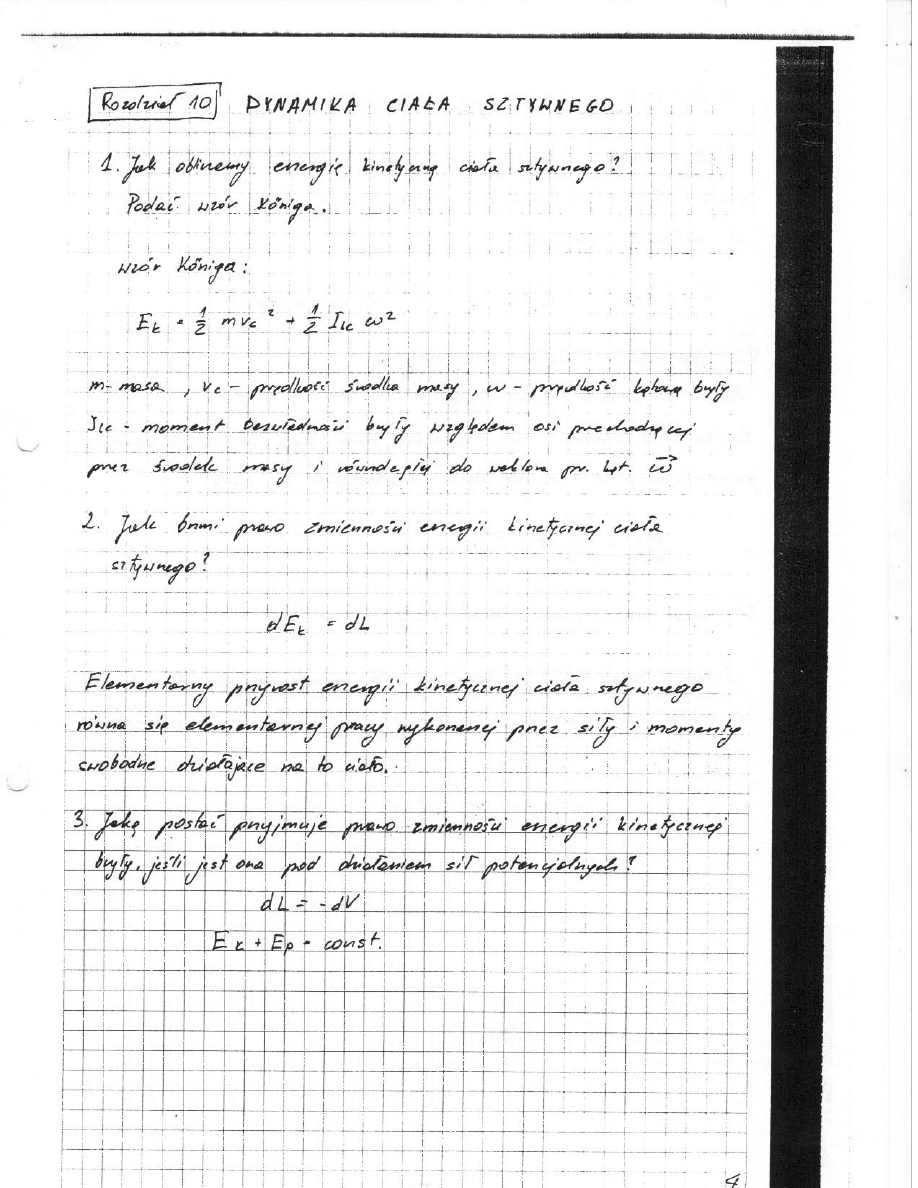 Rozdział 10 DYNAMIKA CIAŁA SZTYWNEGO
1. Jak obliczamy energię kinetyczną ciała sztywnego?
Podać wzór Königa.
wzór Königa:
E_k = 1/2 mv_c² + 1/2 I_lc ω²
m- masa , v_c - prędkość środka masy , ω - prędkość kątowa bryły
I_lc - moment bezwładności bryły względem osi przechodzącej
przez środek masy i równoległej do wektora pr. kąt. ω⃗
2. Jak brzmi prawo zmienności energii kinetycznej ciała
sztywnego?
dE_k = dL
Elementarny przyrost energii kinetycznej ciała sztywnego
równa się elementarnej pracy wykonanej przez siły i momenty
swobodne działające na to ciało.
3. Jaką postać przyjmuje prawo zmienności energii kinetycznej
bryły, jeśli jest ona pod działaniem sił potencjalnych?
dL = -dV
E_k + E_p = const.
4